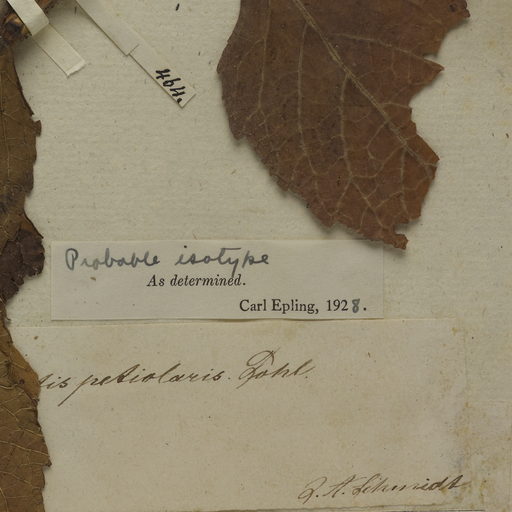 464.
Probable isotype
As determined.
Carl Epling, 1928.
tis petiolaris. Pohl.
J. A. Schmidt